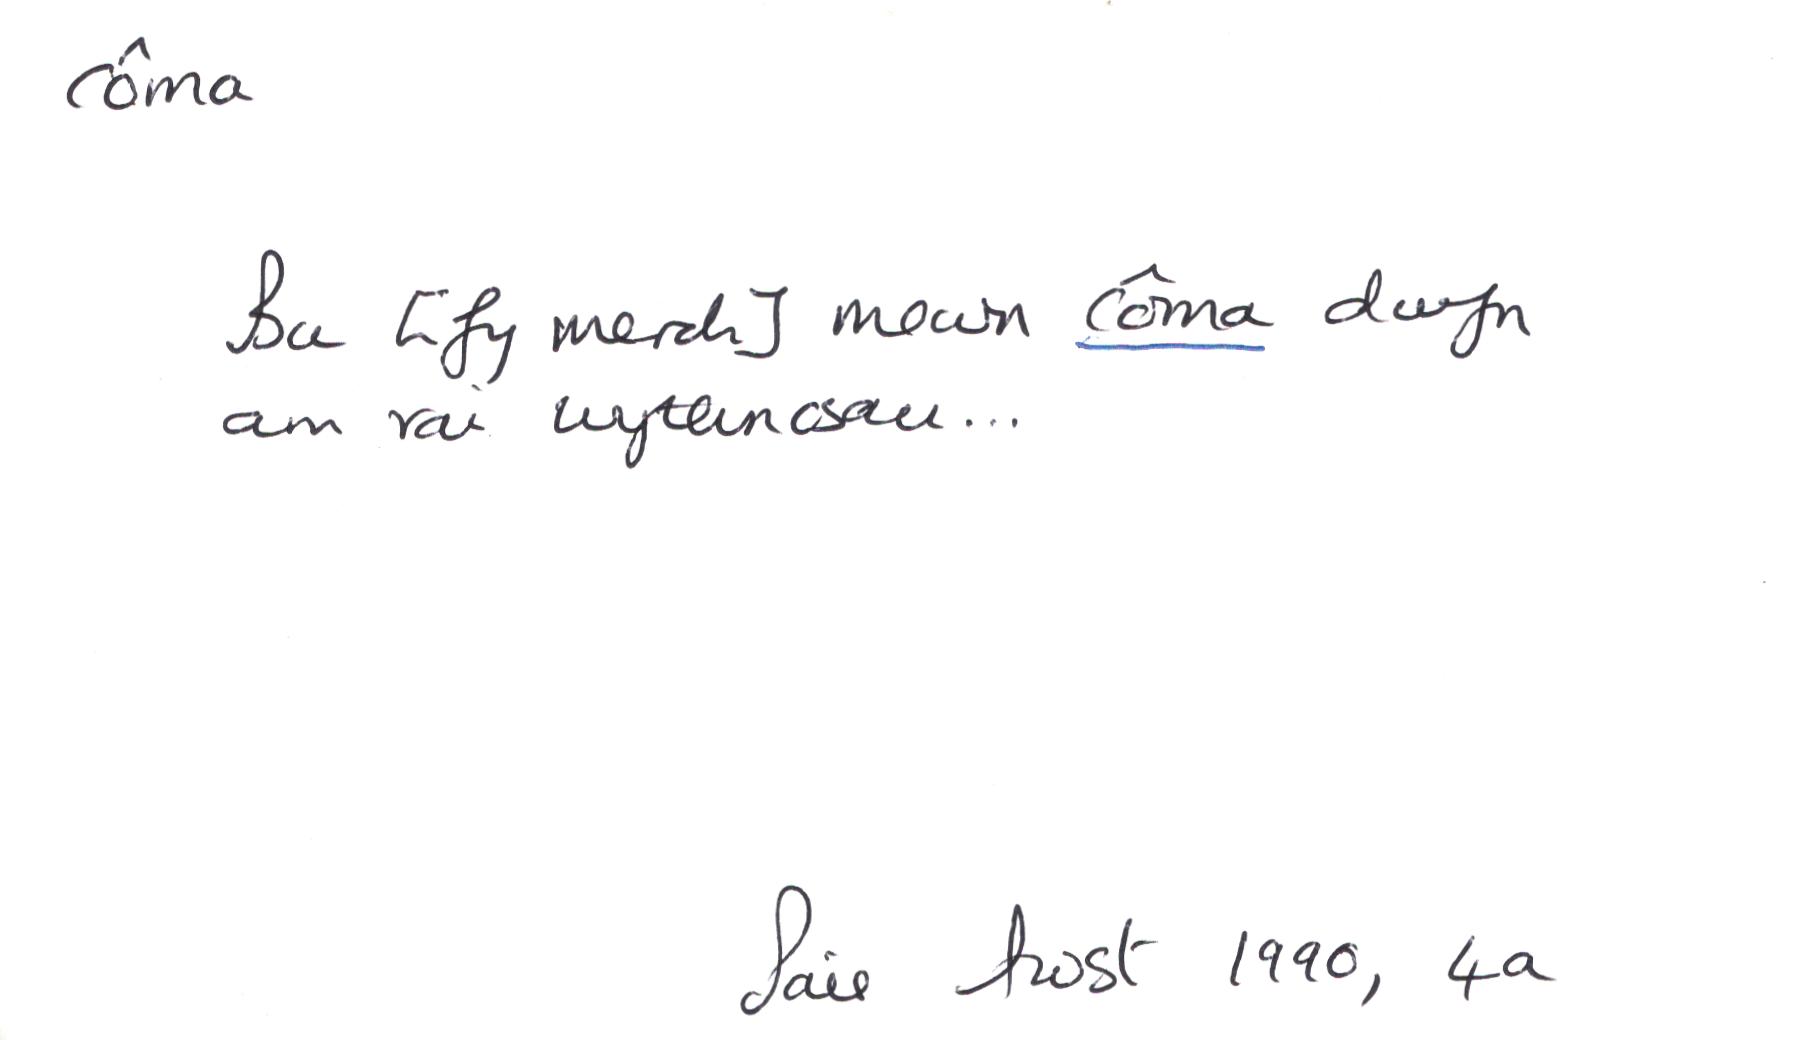 côma
Bu [fy merch] mewn côma dwfn
am rai wythnosau...
Pais Awst 1990, 4a